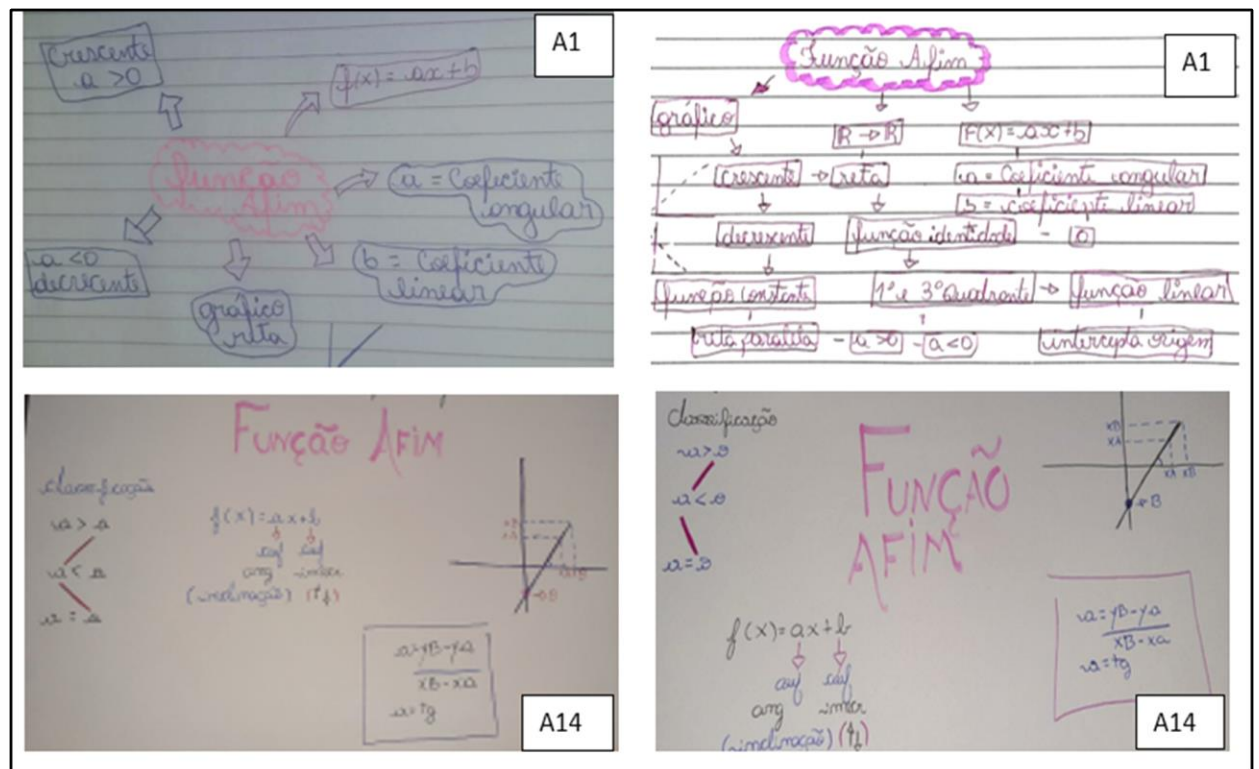 A1
Crescente
a > 0
f(x) = ax + b
função
Afim
a = Coeficiente
angular
b = Coeficiente
linear
gráfico
reta
a < 0
decrecente
A1
Função Afim
gráfico
R → R
F(x) = ax + b
crescente → reta
a = Coeficiente angular
b = coeficiente linear
decrescente
função identidade - 0
função constante
1º e 3º Quadrante → função linear
reta paralela - a > 0 - a < 0
intercepta origem
Função Afim
classificação
f(x) = ax + b
ang
(inclinação)
a = yB - ya
xB - xa
a = tg
A14
Classificação
a > 0
a < 0
a = 0
FUNÇÃO
AFIM
xB
xA
xA xB
B
f(x) = ax + b
ang
(inclinação)
a = yB - ya
xB - xa
a = tg
A14